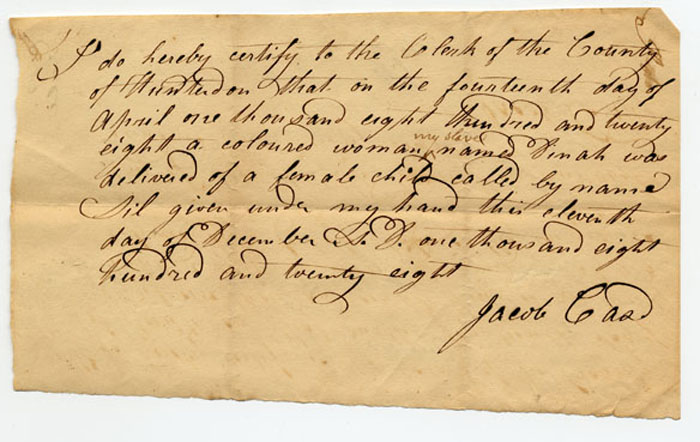 I do hereby certify to the Clerk of the County
of Hunterdon that on the fourteenth day of
April one thousand eight hundred and twenty
my slave
eight a coloured woman named Dinah was
delivered of a female child called by name
Sil given under my hand this eleventh
day of December A. D. one thousand eight
hundred and twenty eight
Jacob Case